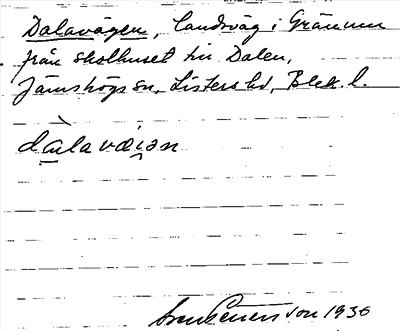 Dalavägen, landsväg i Gränum
från skolhuset till Dalen,
Jämshögs sn, Listers hd, Blek. l.
dàlavæiən
Sven Benson 1930